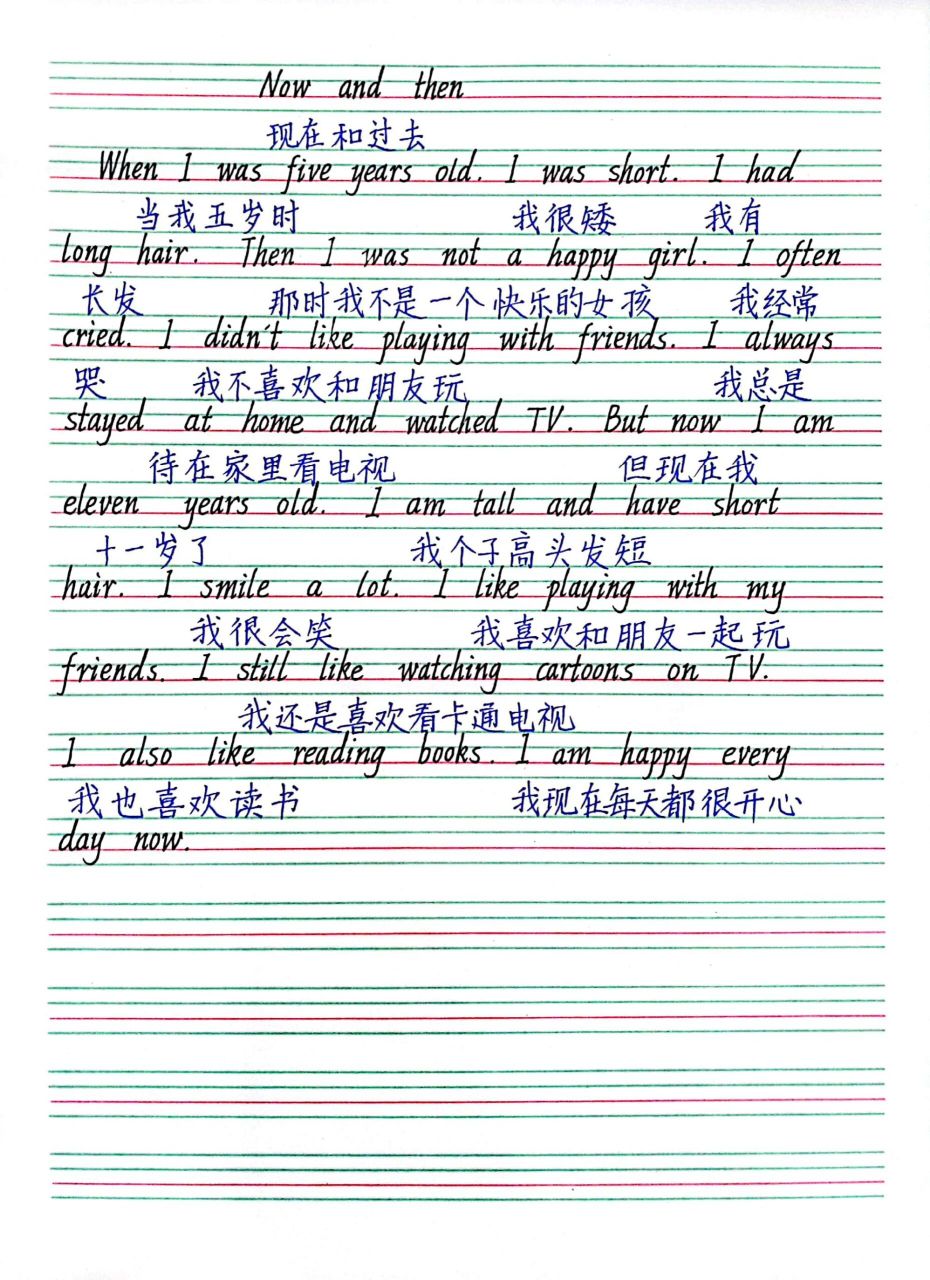 Now and then
现在和过去
When I was five years old. I was short. I had
当我五岁时 我很矮 我有
long hair. Then I was not a happy girl. I often
长发 那时我不是一个快乐的女孩 我经常
cried. I didn't like playing with friends. I always
哭 我不喜欢和朋友玩 我总是
stayed at home and watched TV. But now I am
待在家里看电视 但现在我
eleven years old. I am tall and have short
十一岁了 我个子高头发短
hair. I smile a lot. I like playing with my
我很会笑 我喜欢和朋友一起玩
friends. I still like watching cartoons on TV.
我还是喜欢看卡通电视
I also like reading books. I am happy every
我也喜欢读书 我现在每天都很开心
day now.